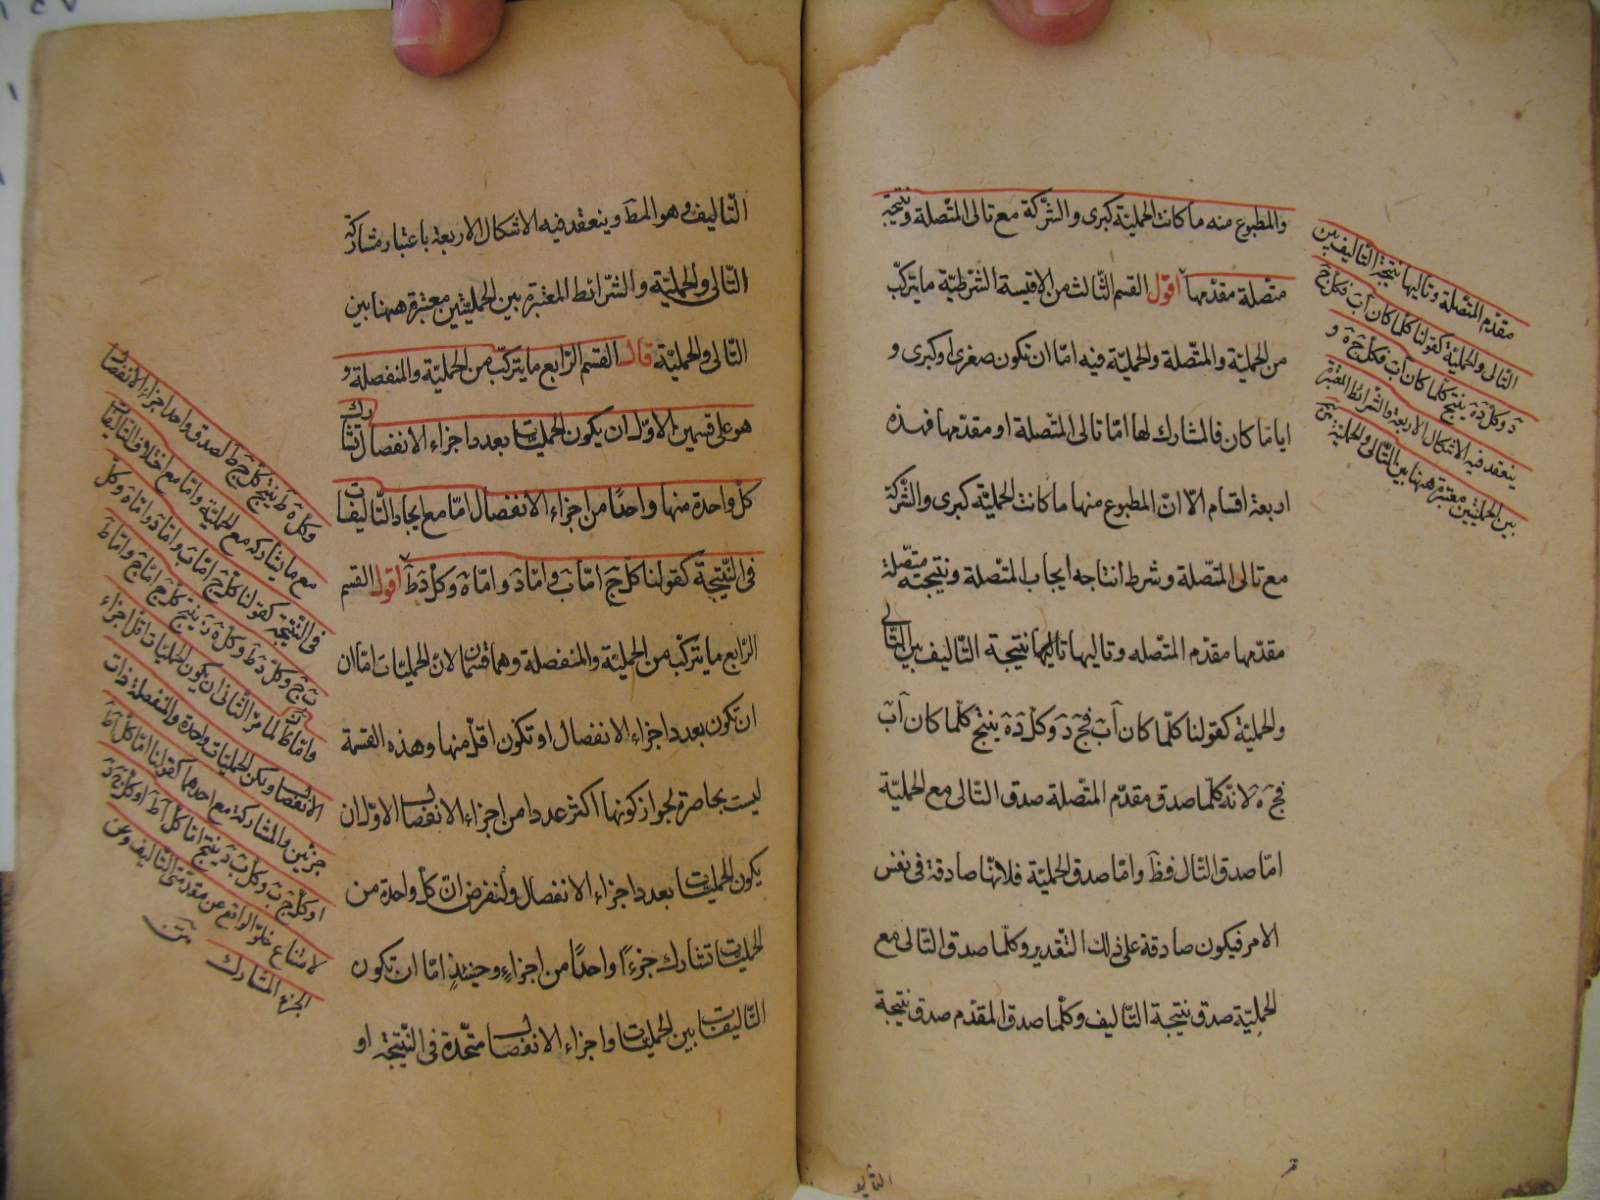 والمطبوع منه ما كانت الحملیّة كبرى والشّركة مع تالى المتّصلة ونتیجته
متصلة مقدّمها اقول القسم الثّالث من الاقیسة الشّرطیّة ما یتركّب
من الحملیّة والمتّصلة والحملیّة فیه امّا ان تكون صغرى او كبرى و
ایا مّا كان فالمشارك لها امّا تالى المتّصلة او مقدّمها فهذه
اربعة اقسام الّا انّ المطبوع منها ما كانت الحملیّة كبرى والشّركة
مع تالى المتّصلة وشرط انتاجه ایجاب المتّصلة ونتیجته متّصلة
مقدّمها مقدّم المتّصله وتالیها نتیجة التّالیف بین التّالى
والحملیّة كقولنا كلّما كان اَبَ فجَ دَ وكلّ دَ هَ ینتج كلّما كان اَبَ
فجَ هَ لانّه كلّما صدق مقدّم المتّصلة صدق التّالى مع الحملیّة
امّا صدق التّالى فظَ وامّا صدق الحملیّة فلانّها صادقة فى نفس
الامر فیكون صادقة على ذلك التّقدیر وكلّما صدق التّالى مع
الحملیّة صدق نتیجة التّالیف وكلّما صدق المقدّم صدق نتیجة
مقدّم المتّصلة وتالیها نتیجة التّالیف بین
التّالى والحملیّة كقولنا كلّما كان اَبَ فكلّ جَ
دَ وكلّ دَ هَ ینتج كلّما كان اَبَ فكلّ جَ هَ و
ینعقد فیه الاشكال الاربعة والشّرائط المعتبرة
بین الحملیّتین معتبرة ههنا بین التّالى والحملیّة متن
التّالیف وهو المطَ وینعقد فیه الاشكال الاربعة باعتبار مشاركة
التّالى والحملیّة والشّرائط المعتبرة بین الحملیّتین معتبرة ههنا بین
التّالى والحملیّة قال القسم الرّابع ما یتركّب من الحملیّة والمنفصلة و
هو على قسمین الاوّل ان یكون الحملیّات بعدد اجزاء الانفصال تشارك
كلّ واحدة منها واحدًا من اجزاء الانفصال امّا مع اتحاد التّالیفات
فى النّتیجة كقولنا كلّ جَ امّا بَ وامّا دَ وامّا هَ وكلّ دَ طَ اقول القسم
الرّابع ما یتركّب من الحملیّة والمنفصلة وهما قسمان لانّ الحملیّات امّا ان
ان تكون بعدد اجزاء الانفصال او تكون اقلّ منها وهذه القسمة
لیست بحاصرة لجواز كونها اكثر عددا من اجزاء الانفصال الاوّل ان
یكون الحملیّات بعدد اجزاء الانفصال ولنفرض انّ كلّ واحدة من
الحملیّات تشارك جزءًا واحدًا من اجزاء وحینئذٍ امّا ان تكون
التّالیفات بین الحملیّات واجزاء الانفصال متّحدة فى النّتیجة او
وكلّ هَ طَ ینتج كلّ جَ طَ لصدق واحد اجزاء الانفصال
مع ما یشاركه مع الحملیّة وامّا مع اختلاف التّالیفات
فى النّتیجة كقولنا كلّ جَ امّا بَ وامّا دَ وامّا هَ وكلّ
بَ جَ وكلّ دَ طَ وكلّ هَ زَ ینتج كلّ جَ امّا جَ وامّا طَ
وامّا زَ لما مرّ الثّانى ان یكون الحملیّات اقلّ اجزاء
الانفصال ولیكن الحملیّات واحدة والمنفصلة ذات
جزئین والمشاركة مع احدهما كقولنا امّا كلّ اَ طَ
او كلّ جَ بَ وكلّ بَ دَ ینتج امّا كلّ اَ طَ او كلّ جَ دَ
لامتناع خلوّ الواقع عن مقدّمتى التّالیف وعن
الجزء المشارك
متن
التالیف